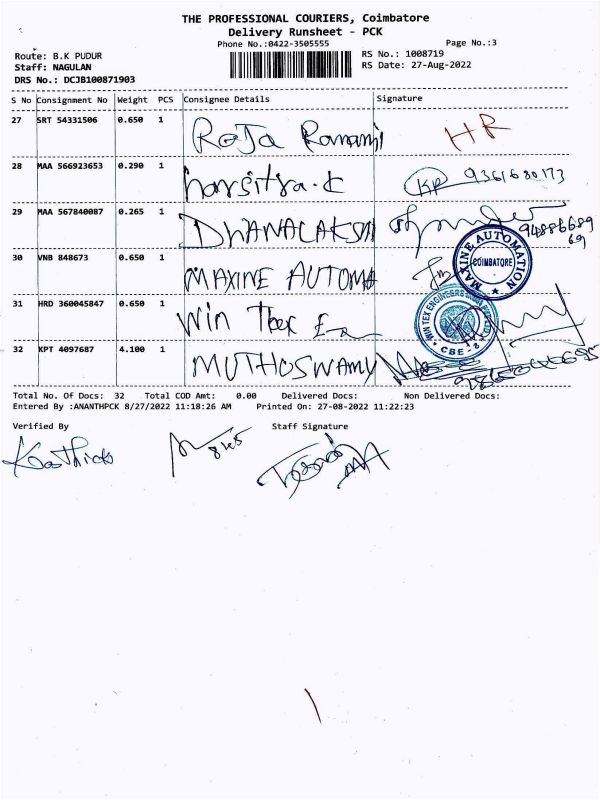 THE PROFESSIONAL COURIERS, Coimbatore
Delivery Runsheet - PCK
Phone No.:0422-3505555
Page No.:3
Route: B.K PUDUR
RS No.: 1008719
Staff: NAGULAN
RS Date: 27-Aug-2022
DRS No.: DCJB100871903
S No Consignment No Weight PCS Consignee Details Signature
27 SRT 54331506 0.650 1 Raja Ramanji HR
28 MAA 566923653 0.290 1 KR 9361680173
29 MAA 567840087 0.265 1 DHANALAKSMI
30 VNB 848673 0.650 1 MAXINE AUTOMA MAXINE AUTOMATION COIMBATORE
31 HRD 360045847 0.650 1 Win Tex WIN TEX ENGINEERS CBE-
32 KPT 4097687 4.100 1 MUTHOSWAMY
Total No. Of Docs: 32 Total COD Amt: 0.00 Delivered Docs: Non Delivered Docs:
Entered By :ANANTHPCK 8/27/2022 11:18:26 AM Printed On: 27-08-2022 11:22:23
Verified By Staff Signature
Karthick